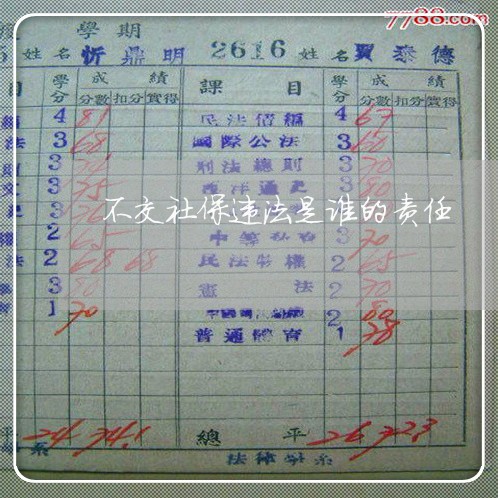 7788.com
學期
姓名 忻鼎明 2616 姓名 賈泰德
目 學分 成績 課目 學分 成績
分數 扣分 實得 分數 扣分 實得
4 81 民法債編 4 67
法 3 68 國際公法 3 60
3 刑法總則 3 70
3 75 西洋通史 3 80
不交社保违法是谁的责任
2 65 3 70
法 2 68 68 民法物權 2 65
3 80 憲法 2 70
1 70 2 80
普通體育 1 78
平 24 74.1 總平 26 72.3
系 法律學系